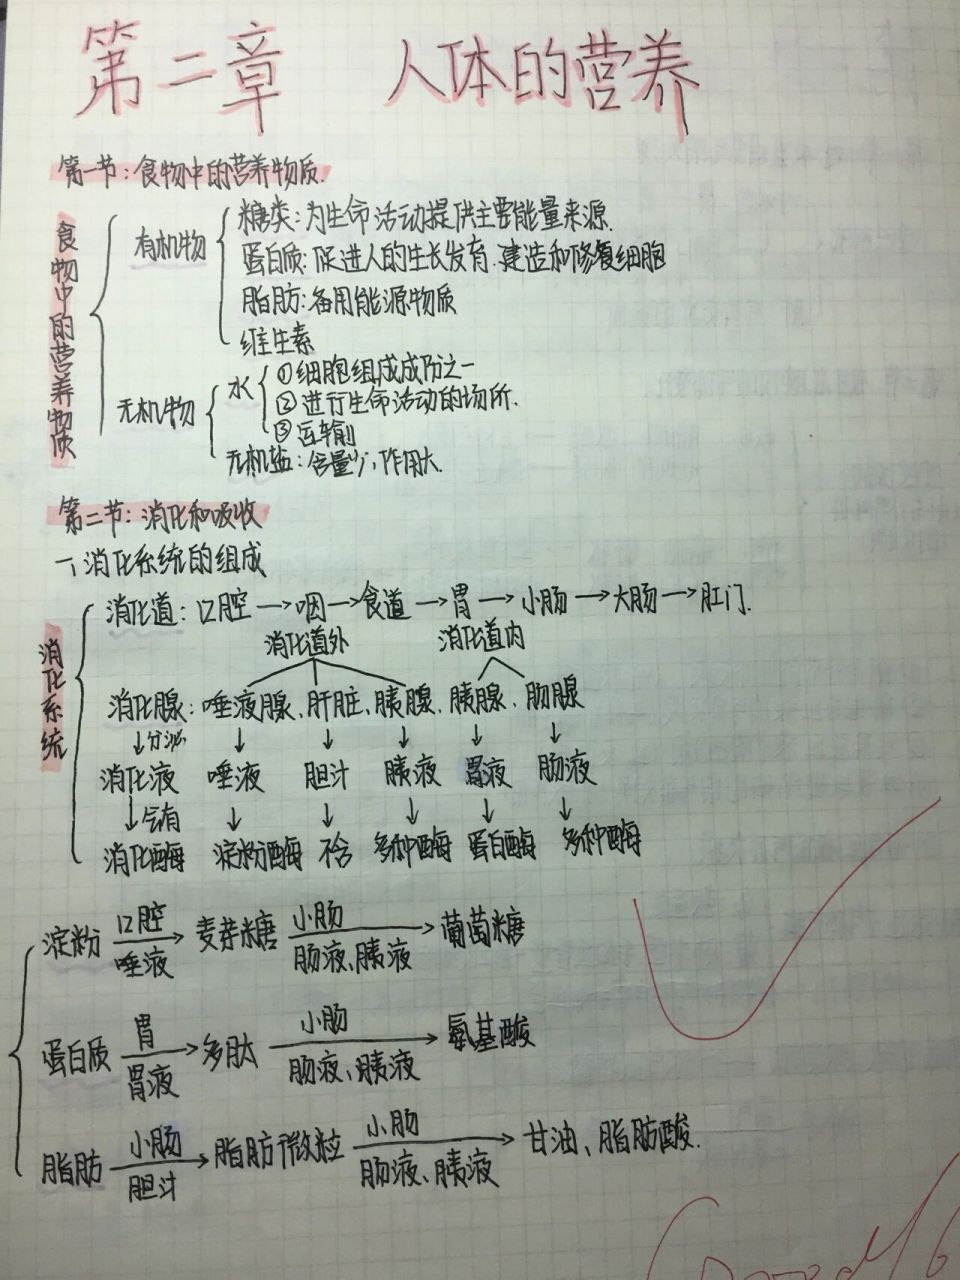 第二章 人体的营养
第一节:食物中的营养物质.
食物中的营养物质
有机物
糖类:为生命活动提供主要能量来源.
蛋白质:促进人的生长发育.建造和修复细胞
脂肪:备用能源物质
维生素
无机物
水
①细胞组成成分之一
②进行生命活动的场所.
③运输
无机盐:含量少,作用大.
第二节:消化和吸收
一、消化系统的组成
消化系统
消化道:口腔→咽→食道→胃→小肠→大肠→肛门.
消化道外 消化道内
消化腺:唾液腺、肝脏、胰腺、胰腺、肠腺
↓分泌 ↓ ↓ ↓ ↓ ↓
消化液 唾液 胆汁 胰液 胃液 肠液
↓含有 ↓ ↓ ↓ ↓ ↓
消化酶 淀粉酶 不含 多种酶 蛋白酶 多种酶
口腔 小肠
淀粉 → 麦芽糖 → 葡萄糖
唾液 肠液、胰液
胃 小肠
蛋白质 → 多肽 → 氨基酸
胃液 肠液、胰液
小肠 小肠
脂肪 → 脂肪微粒 → 甘油、脂肪酸.
胆汁 肠液、胰液
Good